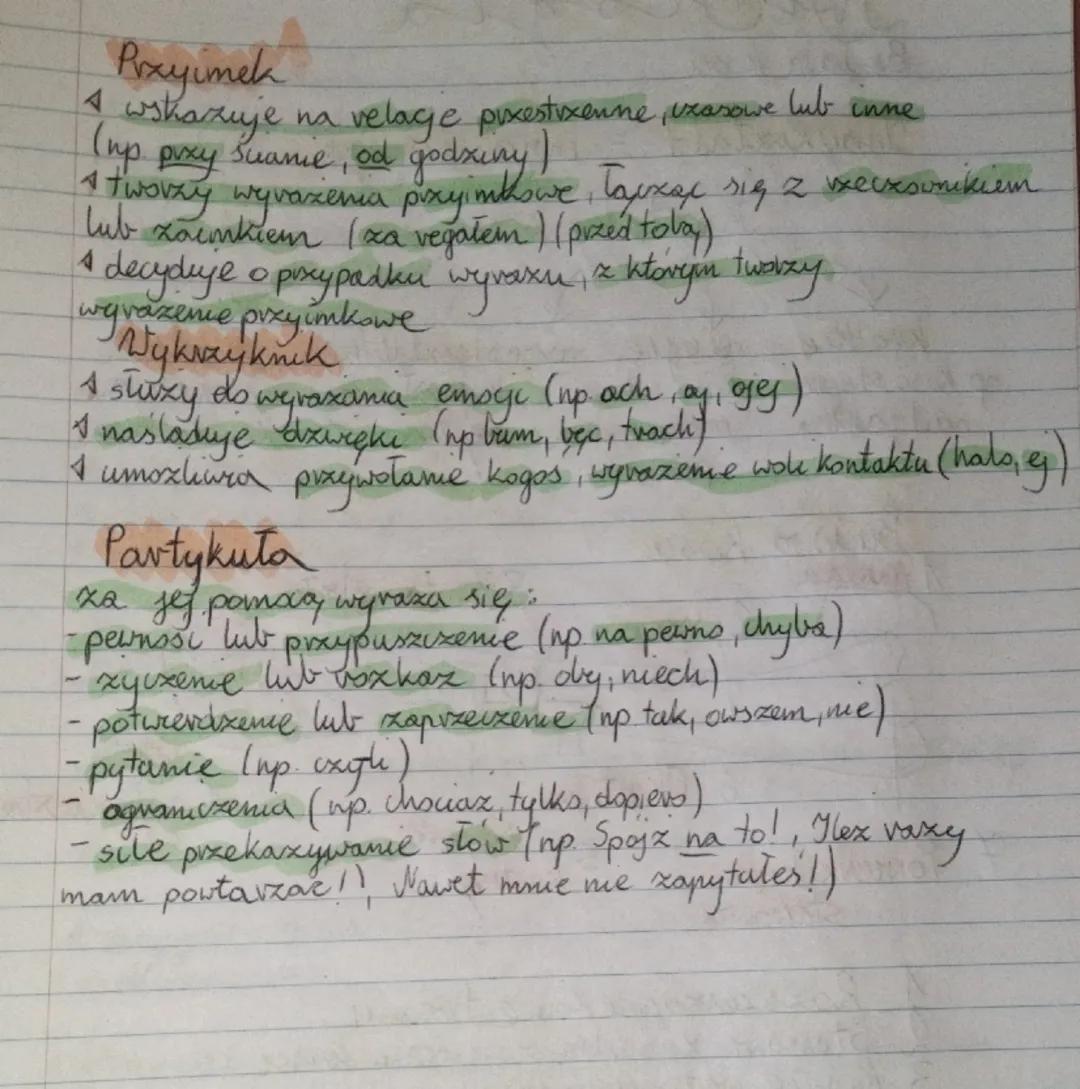 Przyimek
wskazuje na relacje przestrzenne, czasowe lub inne
(np. przy ścianie, od godziny)
tworzy wyrażenia przyimkowe, łącząc się z rzeczownikiem
lub zaimkiem (za regałem) (przed tobą)
decyduje o przypadku wyrazu, z którym tworzy
wyrażenie przyimkowe
Wykrzyknik
służy do wyrażania emocji (np. ach, oj, ojej)
naśladuje dźwięki (np bum, bęc, trach)
umożliwia przywołanie kogoś, wyrażenie woli kontaktu (halo, ej)
Partykuła
za jej pomocą wyraża się:
- pewność lub przypuszczenie (np. na pewno, chyba)
- życzenie lub rozkaz (np. oby, niech)
- potwierdzenie lub zaprzeczenie (np tak, owszem, nie)
- pytanie (np. czyli)
- ograniczenia (np. chociaż, tylko, dopiero)
- siłę przekazywanie słów (np. Spójż na to!, Ileż razy
mam powtarzać!), Nawet mnie nie zapytałeś!)